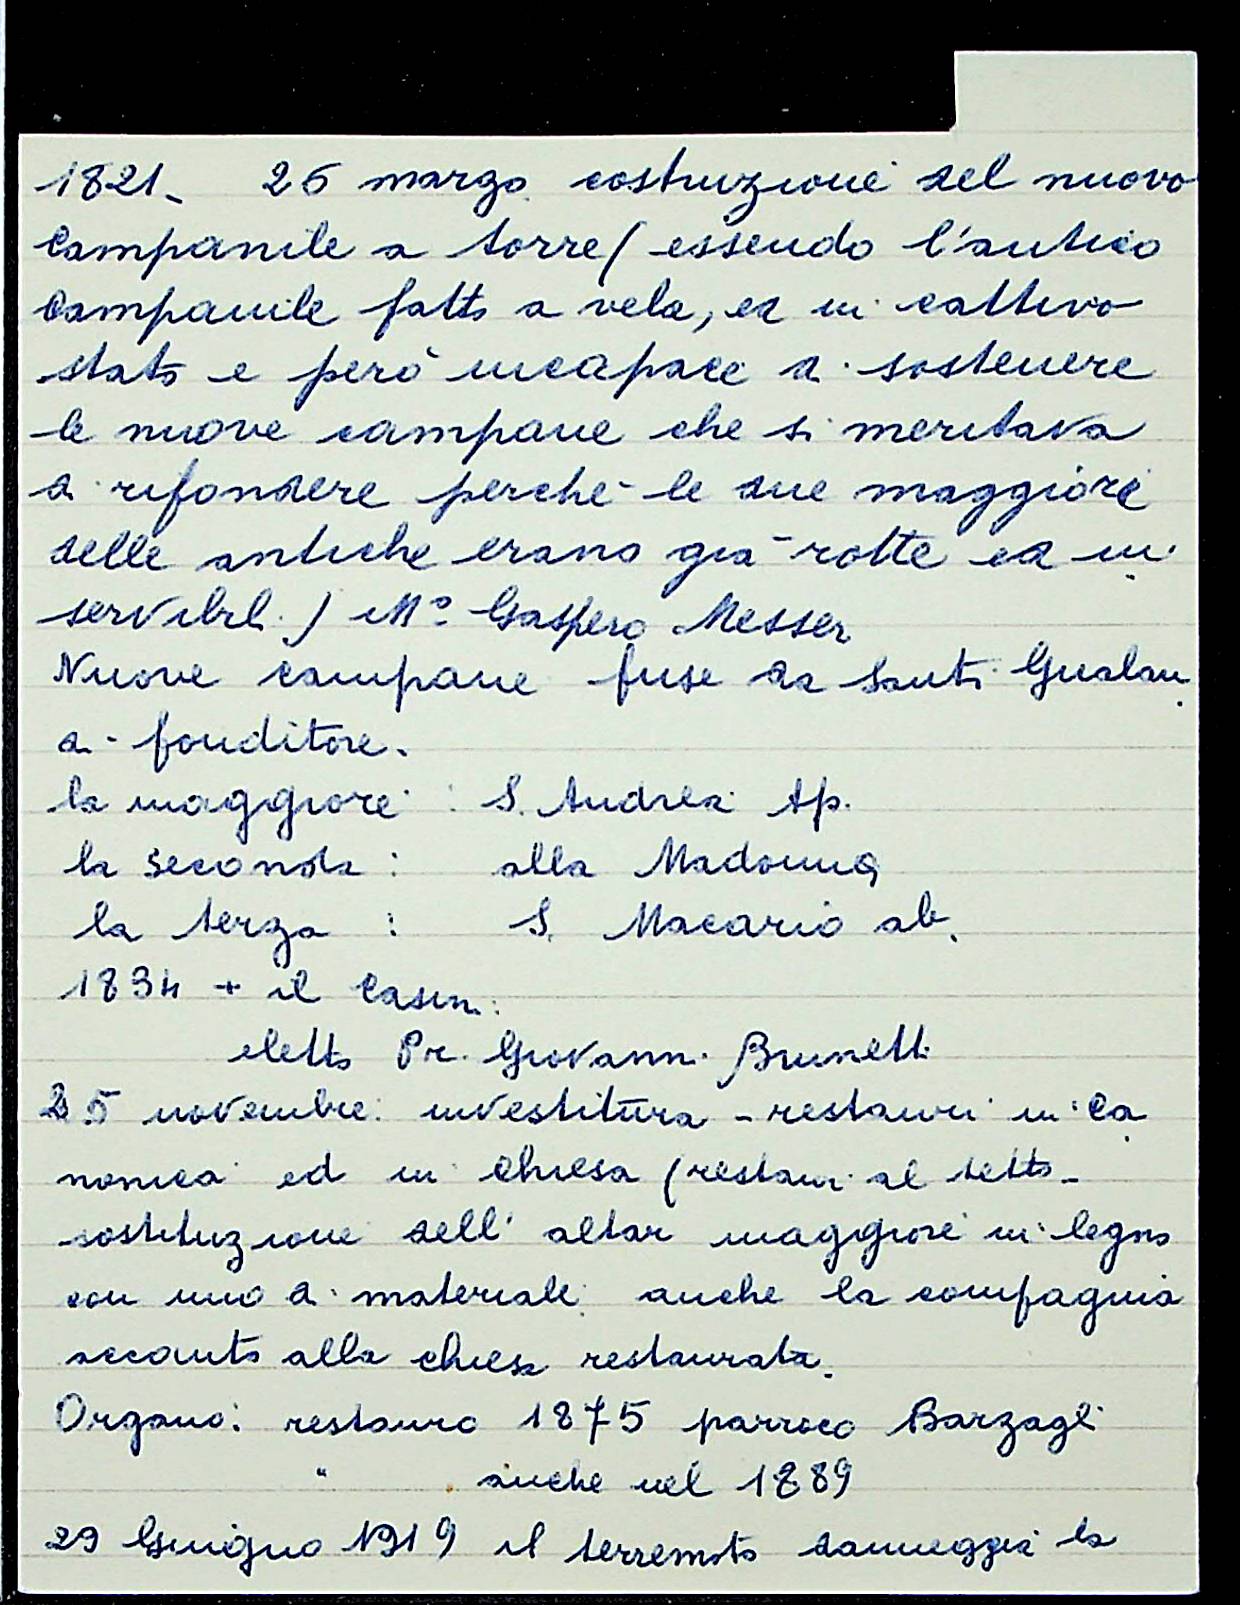 1821- 26 marzo costruzione del nuovo
campanile a torre (essendo l'antico
campanile fatto a vela, ed in cattivo
stato e però incapace di sostenere
le nuove campane che si meritava
di rifondere perché le due maggiori
delle antiche erano già rotte ed in
servibili) Mº Gaspero Messer
Nuove campane fuse da Santi Gualan
di fonditore.
la maggiore: S. Andrea Ap.
la seconda: alla Madonna
la terza: S. Macario ab.
1834 + il Casin:
eletto Pr. Giovanni Brunetti
25 novembre: investitura - restauri in ca
nonica ed in chiesa (restauri al tetto -
sostituzione dell'altar maggiore in legno
con uno di materiale: anche la compagnia
accanto alla chiesa restaurata.
Organo: restauro 1875 parroco Barzagli
" anche nel 1889
29 Giugno 1919 il terremoto danneggia la